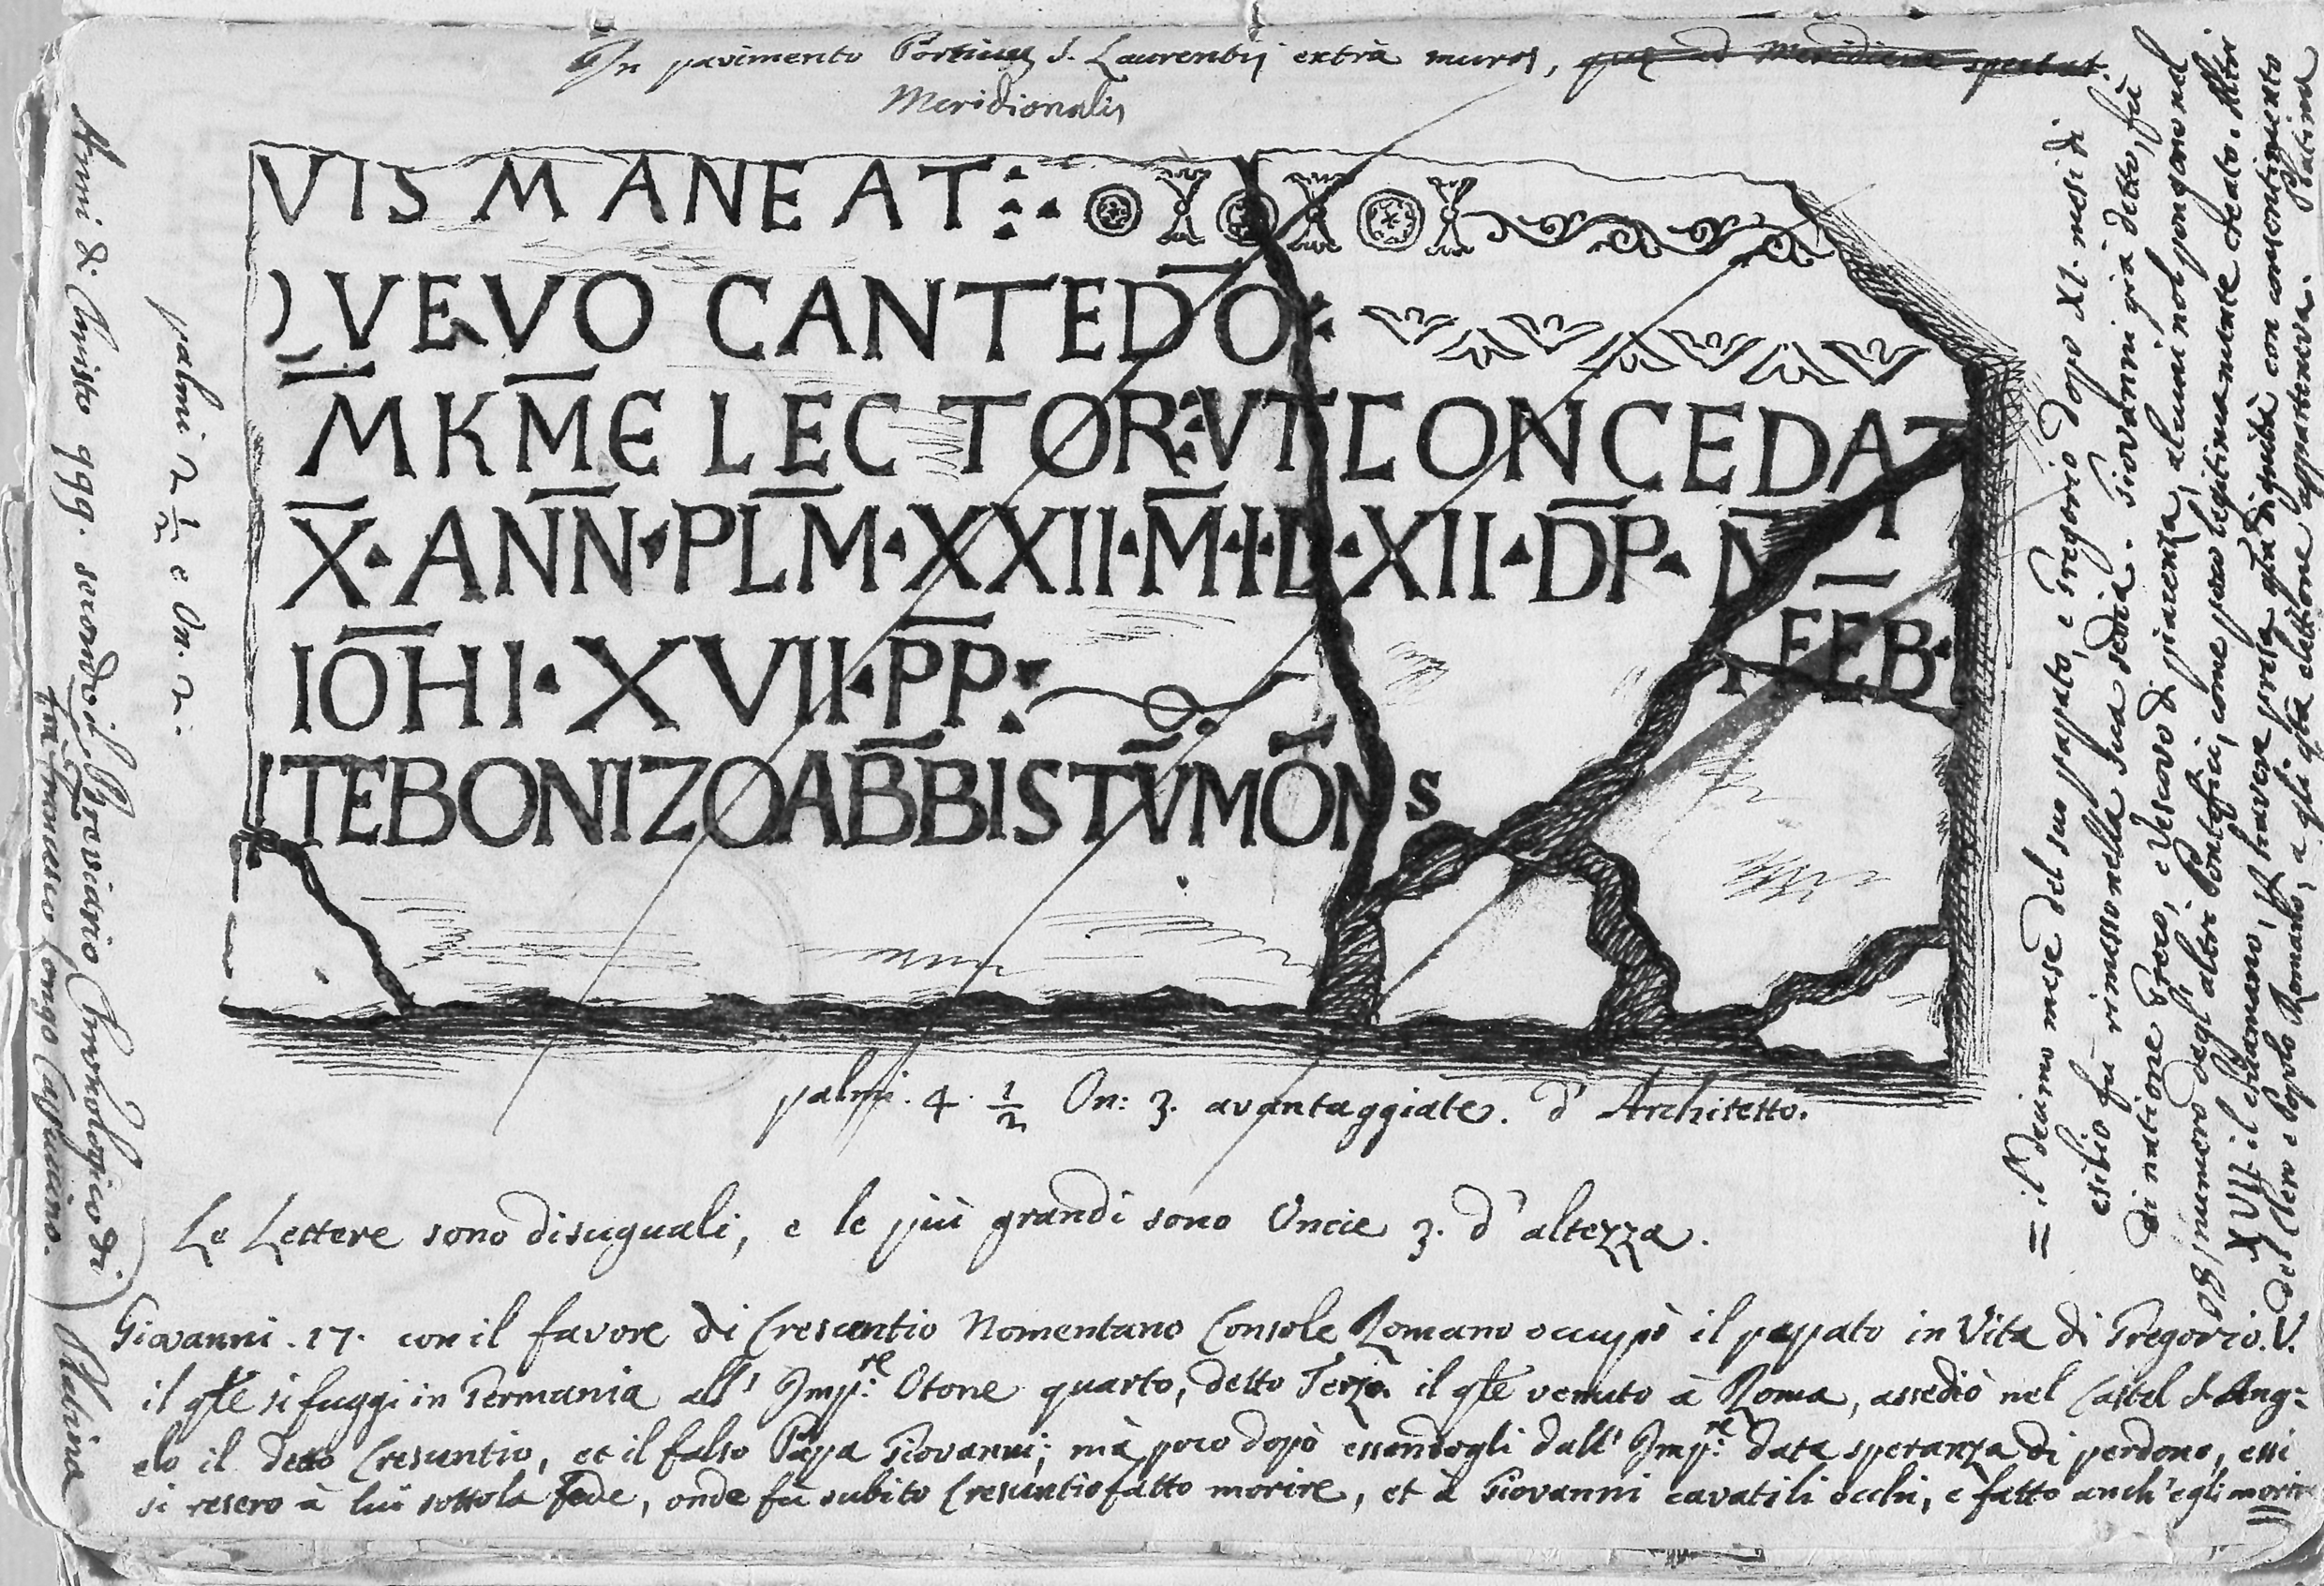 In pavimento Porticus S. Laurentij extrà muros, quę ad Meridiem spectat.
Meridionalis
VIS MANEAT
QVE VO CANTEDO
M K ME LECTOR VT CONCEDAT
X · ANN · PLM · XXII · M · I · D · XII · DP · N
FEB ·
IOHI · XVII · PP
ITEBONIZOABBISTVMONS
palmi 2 1/2 e On. 2.
palmi. 4. 1/2 On: 3. avantaggiate. d' Architetto.
Le Lettere sono disuguali, e le più grandi sono Oncie 3. d'altezza.
Anni di Christo 999. secondo il Breviario Chronologico di
frà Francesco Longo Capuccino.
Giovanni .17. con il favore di Crescentio Nomentano Console Romano occupò il papato in Vita di Gregorio. V.
il qle si fuggì in Germania all' Imp:re Otone quarto, detto Terzo. il qle venuto à Roma, assediò nel Castel S. Ang-
elo il detto Crescentio, et il falso Papa Giovanni; mà poco dopò essendogli dall' Imp:re data speranza di perdono, essi
si resero à lui sotto la fede, onde fù subito Crescentio fatto morire, et à Giovanni cavati li occhi, e fatto anch'egli morire
= il decimo mese del suo papato, e Gregorio dopo XI. mesi di
esilio fù rimesso nella sua sedia. Giovanni già detto, fù
di natione Greco, e Vescovo di piacenza, alcuni nol pongono nel
numero degl' altri Pontefici, come poco legitimamente creato. Altri
XVII il chiamano, p havere presa qta dignità con consentimento
del Clero e Popolo Romano, a gli qta elettione apparteneva. Platina
Platina